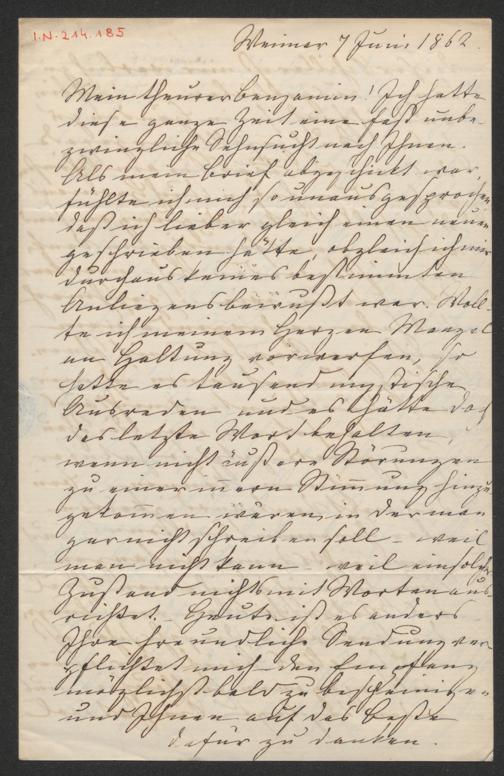 I.N. 214.185
Weimar 7 Juni 1862.
Mein theurer Benjamin! Ich hatte
diese ganze Zeit eine fast unbe-
zwingliche Sehnsucht nach Ihnen.
Als mein Brief abgeschickt war,
fühlte ich mich so unausgesprochen
daß ich lieber gleich einen neuen
geschrieben hätte, obgleich ich mir
durchaus keines bestimmten
Anliegens bewußt war. Woll-
te ich meinem Herzen Mangel
an Haltung vorwerfen, so
hatte es tausend mystische
Ausreden und es hätte doch
das letzte Wort behalten,
wenn nicht äußere Störungen
zu einer innern Stimmung hinzu
gekommen wären, in der man
gar nicht schreiben soll – weil
man nicht kann – weil ein solcher
Zustand nichts mit Worten aus-
richtet. – Heute ist es anders
Ihre freundliche Sendung ver-
pflichtet mich den Empfang
möglichst bald zu bescheinigen
und Ihnen auf das Beste
dafür zu danken.